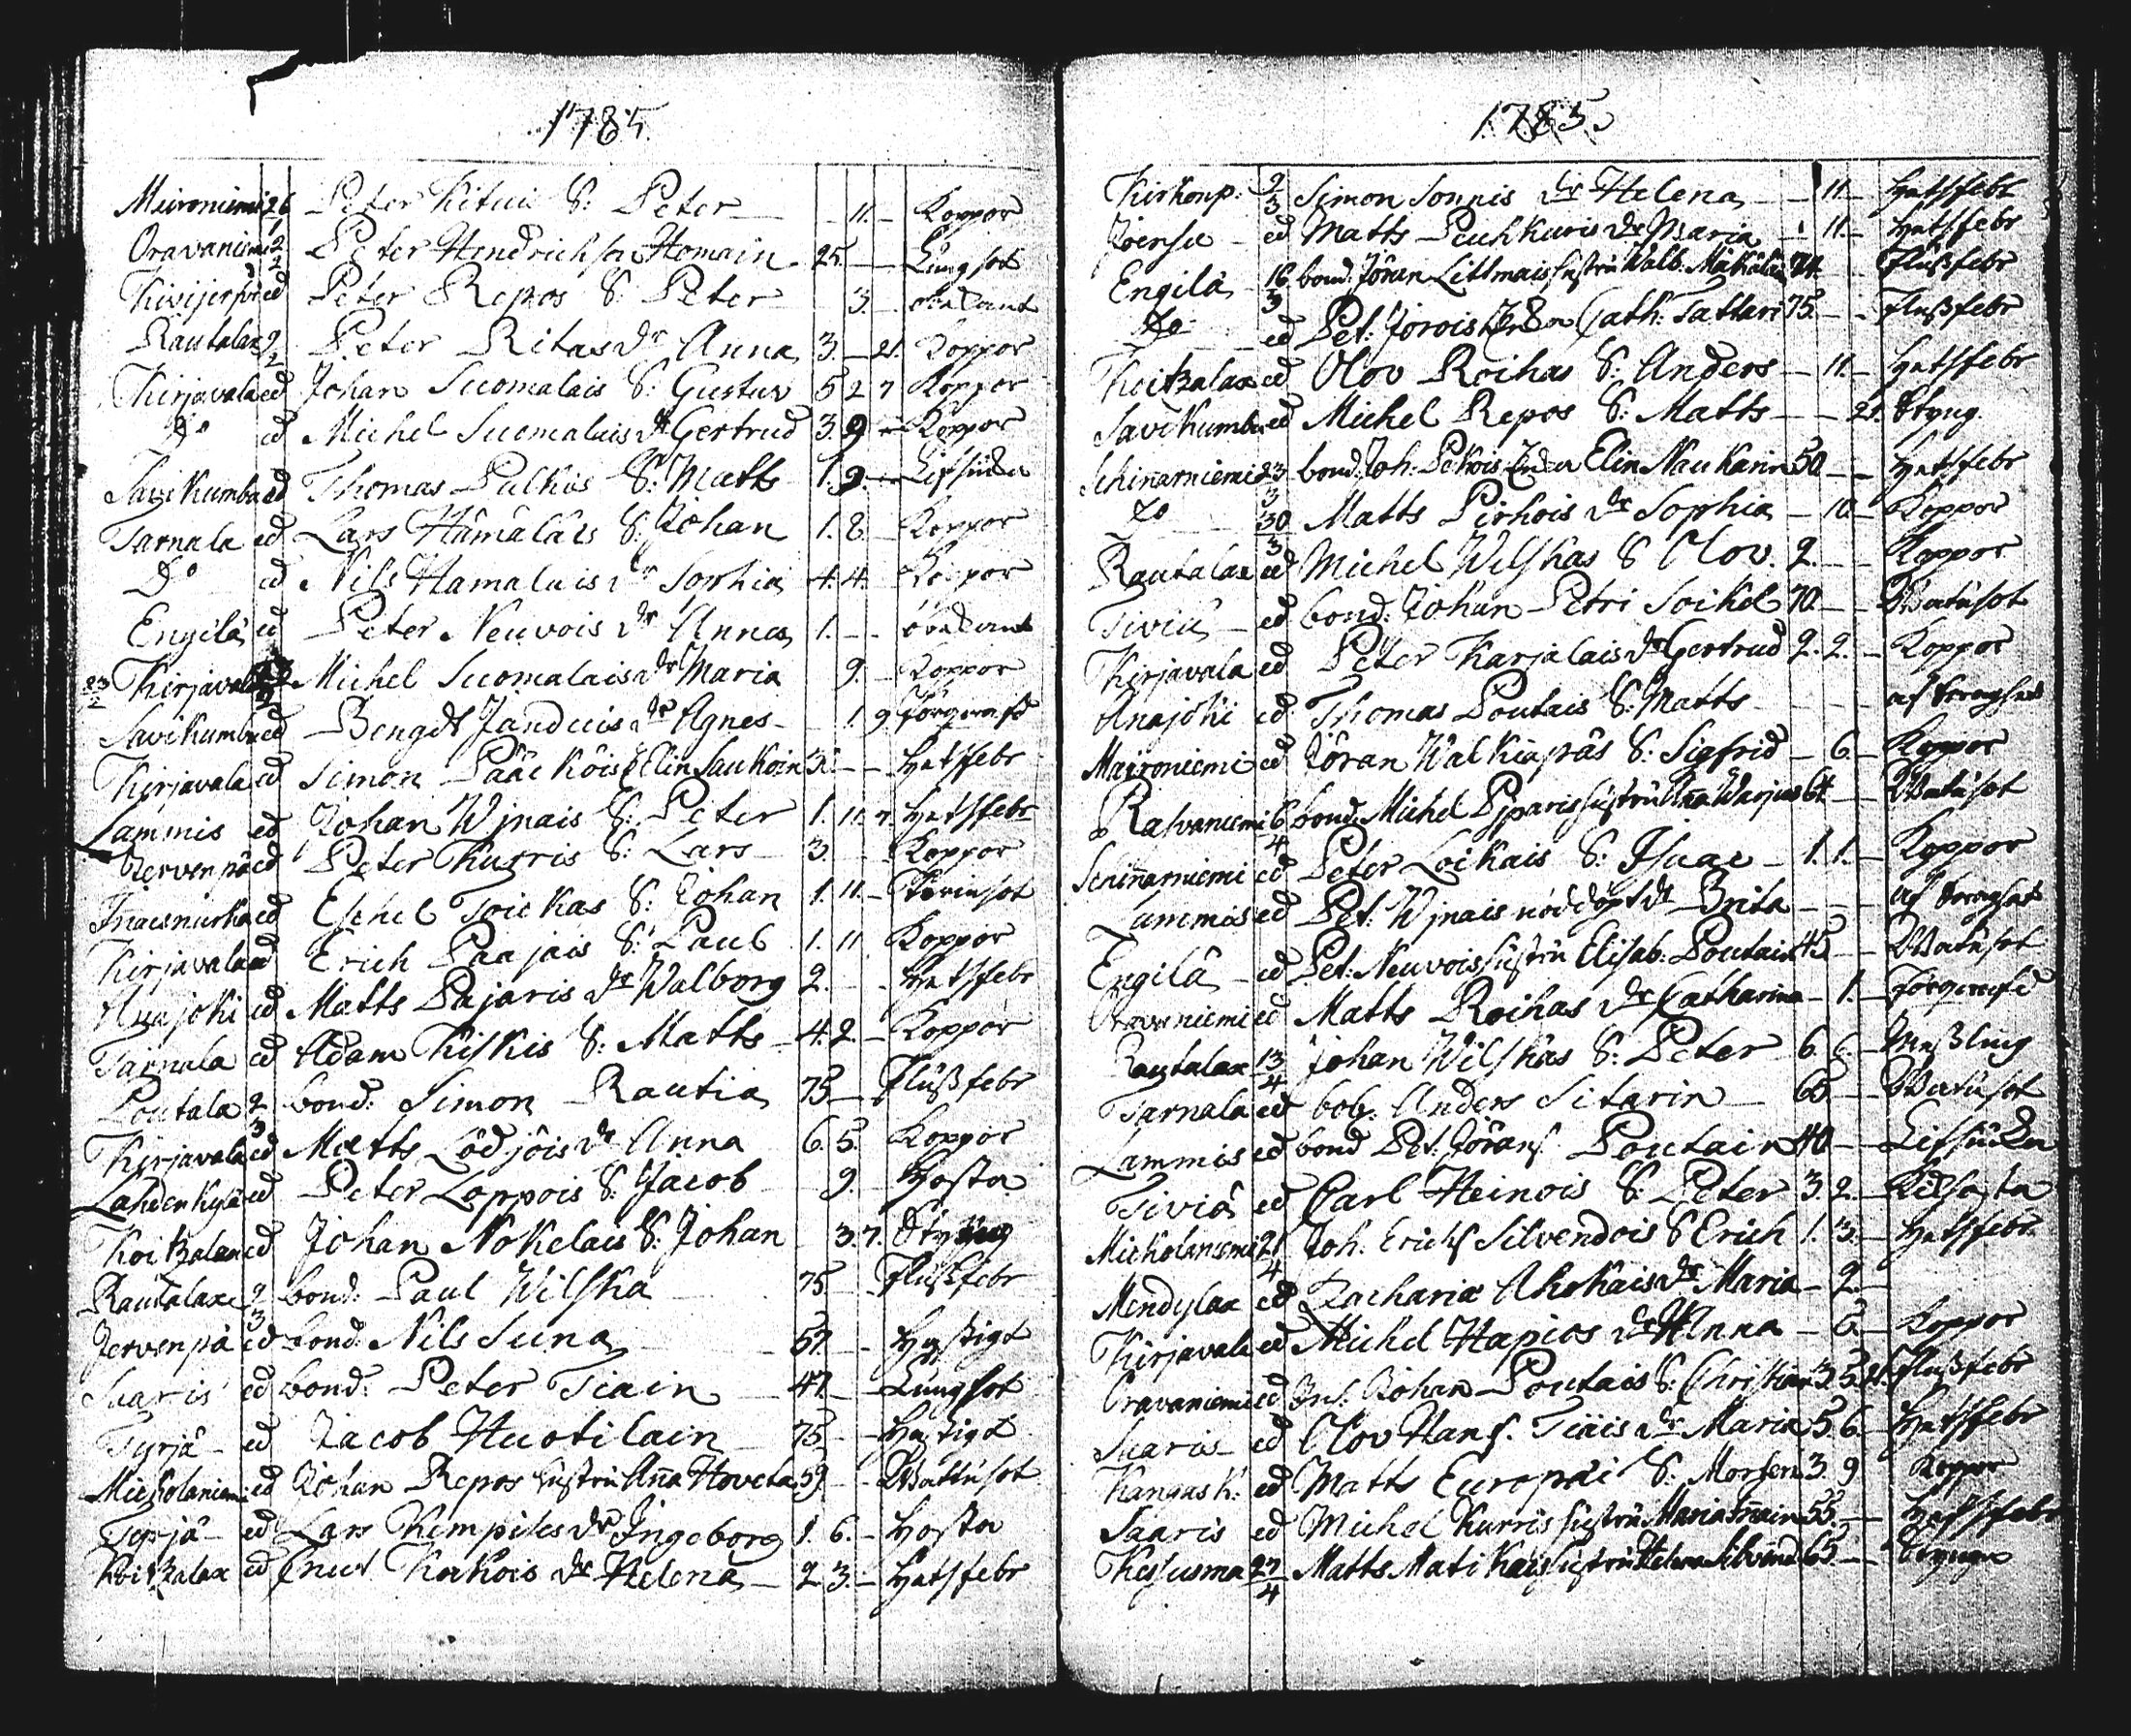 1785.
Mieroniemi 26 Peter Kituis S: Peter — 11. — Koppor
Oravaniemi 2/2 Peter Hendrichson Homain 25. — — Lungsot
Kivijerfvi ed Peter Repos S: Peter — 3. — okändt
Rautalax 9/2 Peter Ritas dr Anna 3. — 21. Koppor
Kirjavala ed Johan Suomalais S: Gustav 5 2 7 Koppor
Do ed Michel Suomalais dr Gertrud 3. 9 — Koppor
Savikumbu ed Thomas Pulkis S: Matts 1. 9. — Lifsiuka
Tarnala ed Lars Hämäläis S: Johan 1. 8. — Koppor
Do ed Nils Hämäläis dr Sophia 4. 4. Koppor
Engilä ed Peter Neuvois dr Anna 1. — — okändt
23/2 Kirjavala Michel Suomalais dr Maria 9. — Koppor
Savikumbu ed Bengdt Janduis dr Agnes — 1. 9
Kirjavala ed Simon Pääcköis Elin Laukoin — — Hetsfebr
Lammis ed Johan Wjnais S: Peter 1. 11. 7. Hetsfebr
Jervenpä ed Peter Kurris S: Lars 3. — Koppor
ed Eschel Toickas S: Johan 1. 11. —
Kirjavala ed Erich Paajais S: Paul 1. 11 Koppor
Anajoki ed Matts Pajaris dr Walborg 2. — — Hetsfebr
Tarnala ed Adam Kiskis S: Matts 4. 2. — Koppor
Poutala 2/3 bond: Simon Rautia 75 — Flussfebr
Kirjavala ed Matts Lödjöis dr Anna 6. 5. Koppor
Lahdenkylä ed Peter Loppois S: Jacob — 9. — Hosta
Koitzalax ed Johan Nokelais S: Johan — 3. 7. Styng
Rautalax 9/3 bond: Paul Wilska 75 — Flussfebr
Jervenpä ed bond: Nils Suna — 57. — Hastigt
Saaris ed bond: Peter Tiain — 47. — Lungsot
Tyrjä — ed Jacob Huotilain — 75. — Hastigt
Mickolaniemi ed Johan Repos hustru Anna Hoveta 59 — Wattusot
Tyrjä — ed Lars Kempiles dr Ingeborg 1. 6. — Hosta
Koitzalax ed Knut Kokois dr Helena — 2 3. — Hetsfebr
1785.
Kirkonp: 9/3 Simon Sonnis dr Helena — 11. — Hetsfebr
Joensu — ed Matts Peuhkuris dr Maria — 11. — Hetsfebr
Engilä 16/3 bond: Jöran Littmais hustru Walb: 74. — Flussfebr
Do ed Pet: Jorois Cath: Tattari 75. — Flussfebr
Koitzalax ed Olov Roihas S: Anders — 11. — Hetsfebr
Savikumbu ed Michel Repos S: Matts — — 21. Styng.
Schinarniemi 23/3 bond: Joh: Pekois Elin Naukarin 50 — Hetsfebr
Do — 30/3 Matts Pirhois dr Sophia — 10. — Koppor
Rautalax ed Michel Wilskas S Olov. 2. — Koppor
Tiviä — ed bond: Johan Petri Soikel 70. — Watusot
Kirjavala ed Peter Karjalais dr Gertrud 2. 2. — Koppor
Anajoki ed Thomas Poutais S: Matts — — —
Maironiemi ed Jöran Walkiapäs S: Sigfrid — 6. — Koppor
Rasvaniemi 6/4 bond: Michel Pjparis hustru Anna Warjus 64 — Watusot
Schinarniemi ed Peter Loikais S: Isaac — 1. 1. — Koppor
Lammis ed Pet: Wjnais nöddöpt dr Brita — —
Engilä — ed Pet: Neuvois hustru Elisab: Poutain 45 — Watusot
Oravaniemi ed Matts Roihas dr Catharina — 1. —
Rautalax 13/4 Johan Wilskas S: Peter 6. 6. — Messling
Tarnala ed Anders Sitarin — 60 — Watusot
Lammis ed bond Pet: Jörans Poutain 40 — Lifsiuka
Tiviä ed Carl Heinois S: Peter 3. 2. —
Mickolaniemi 21/4 Joh: Erichs Silvendois S Erich 1. 3. — Hetsfebr.
Mendylax ed Zacharias Ahokais dr Maria — 2. —
Kirjavala ed Michel Hapios dr Anna — 6. — Koppor
Oravaniemi ed Johan Poutais S: Christian 3. 5. 21. Flussfebr
Saaris — ed Olov Hans. Tiäis dr Maria 5. 6 — Hetsfebr
Kangask: ed Matts Europæi S: Morten 3. 9 Koppor
Saaris ed Michel Kurris hustru Maria 55. — Hetsfebr
Kesusma 27/4 Matts Matikais hustru Helena Silvend 65 — Styng